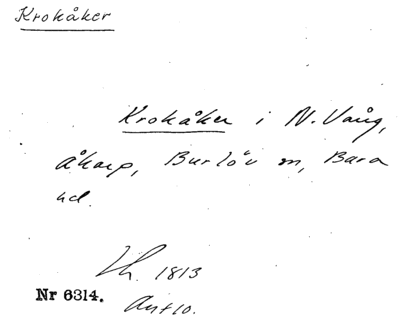 Krokåker
Krokåker i N. Vång,
Åkarp, Burlöv sn, Bara
hd.
1813
Nr 6314.